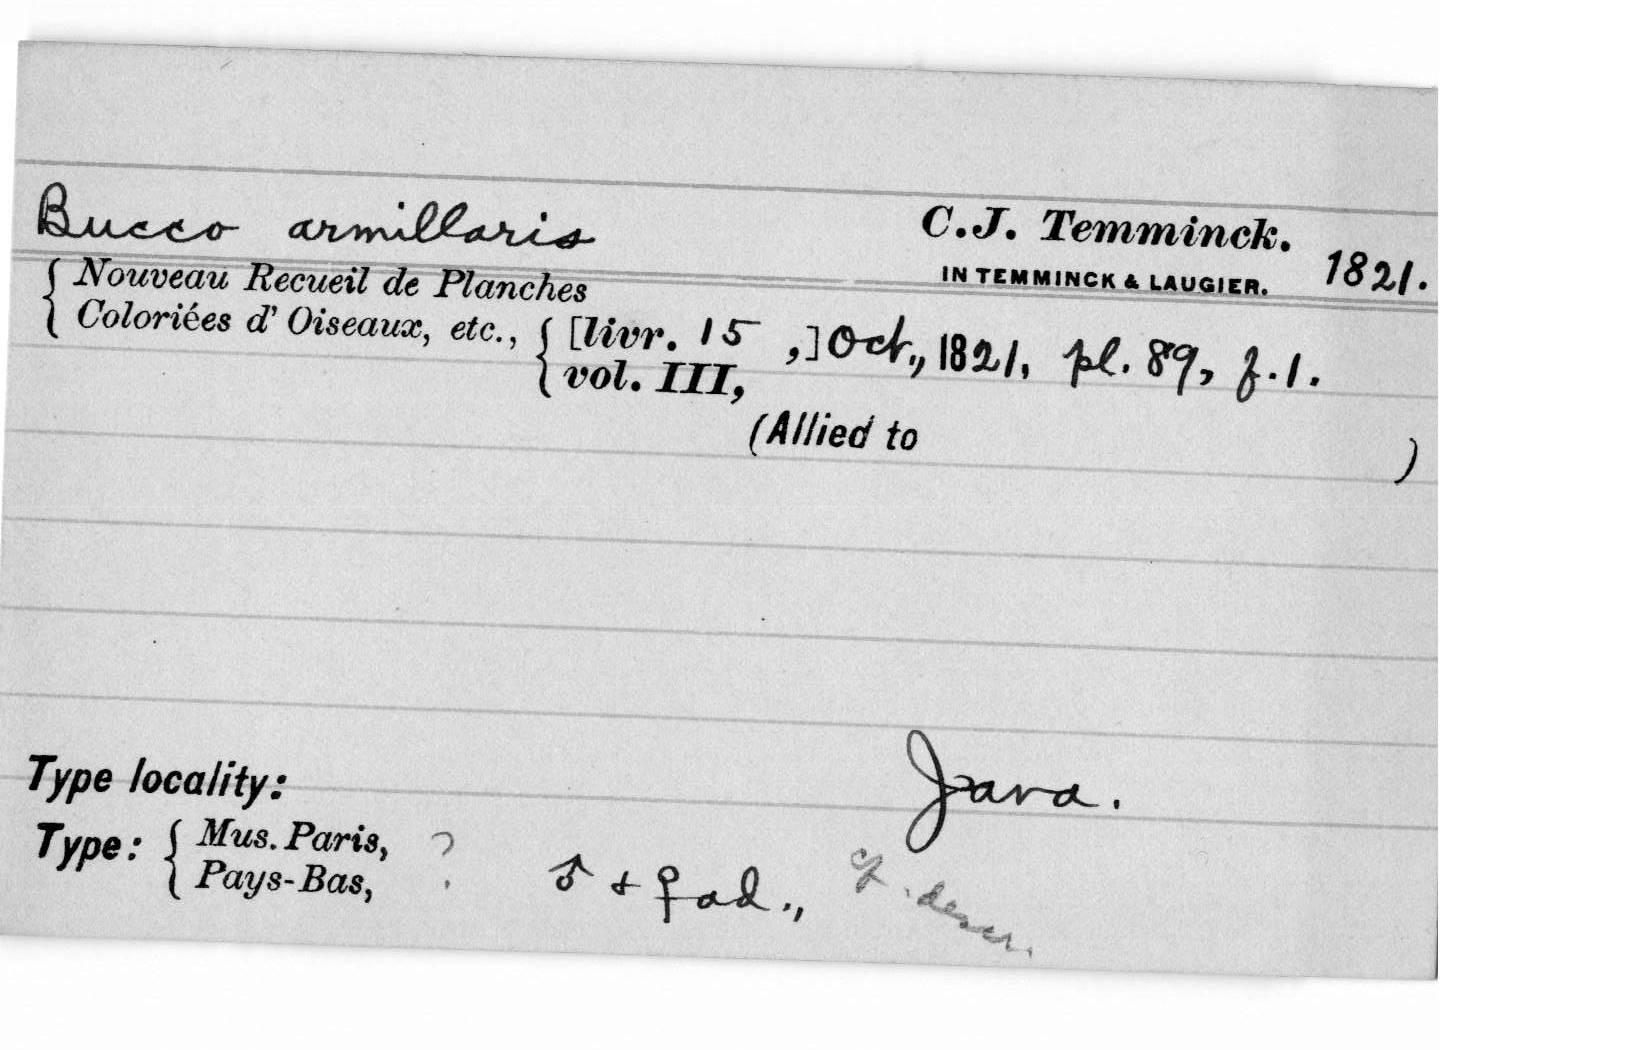 Bucco armillaris C.J. Temminck.
IN TEMMINCK & LAUGIER. 1821.
{ Nouveau Recueil de Planches
Coloriées d' Oiseaux, etc., { [livr. 15 ,] Oct., 1821, pl. 89, f. 1.
vol. III,
(Allied to )
Type locality: Java.
Type: { Mus. Paris, ?
Pays-Bas, ♂ + ♀ ad., cf. descr.